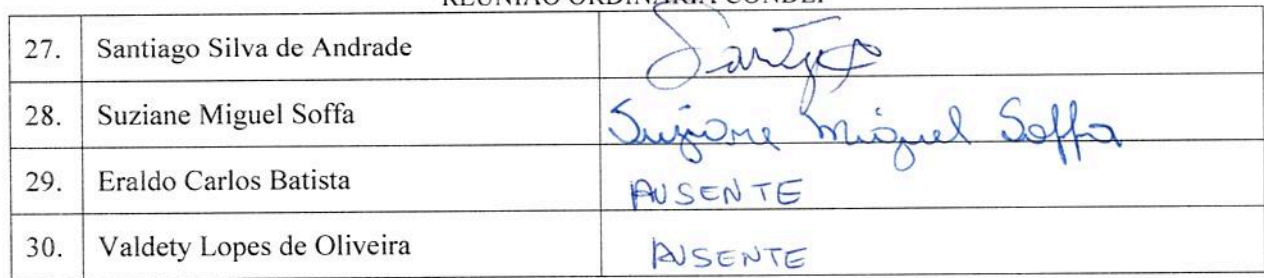 REUNIÃO ORDINÁRIA CONDEP
27. Santiago Silva de Andrade Santiago
28. Suziane Miguel Soffa Suziane Miguel Soffa
29. Eraldo Carlos Batista AUSENTE
30. Valdety Lopes de Oliveira AUSENTE